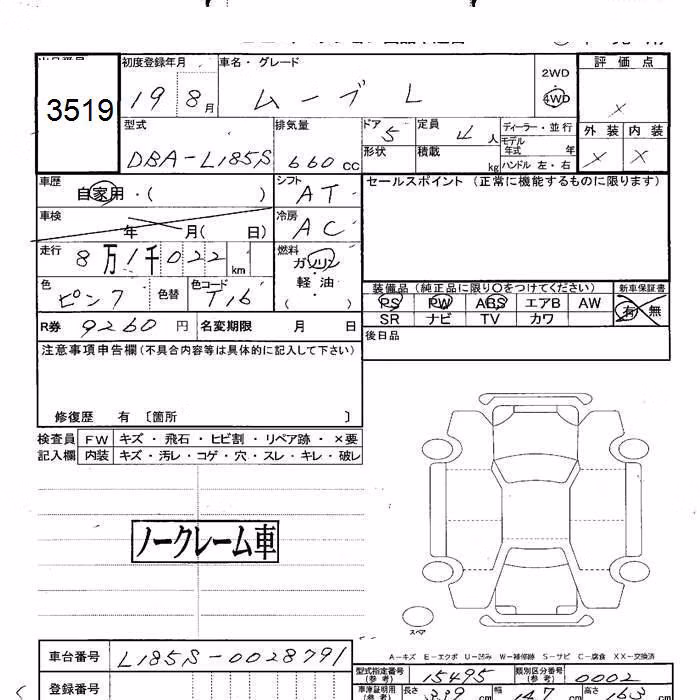 3519
初度登録年月
車名・グレード
2WD
評価点
19 8月
ムーブ L
4WD
×
型式
排気量
ドア 5
定員 4人
ディーラー・並行
外装
内装
モデル年式 年
DBA-L185S
660cc
形状
積載 kg
ハンドル 左・右
× ×
車歴
自家用・( )
シフト AT
セールスポイント (正常に機能するものに限ります)
車検
年 月( 日)
冷房 AC
走行 8万1千022km
燃料
ガソリン
・
軽油
・
( )
色 ピンク
色替
色コード T16
装備品 (純正品に限り○をつけてください)
新車保証書
PS PW ABS エアB AW
有・無
SR ナビ TV カワ
R券 9260円
名変期限 月 日
後日品
注意事項申告欄(不具合内容等は具体的に記入して下さい)
修復歴 有 〔箇所 〕
検査員
FW
キズ・飛石・ヒビ割・リペア跡・×要
記入欄
内装
キズ・汚レ・コゲ・穴・スレ・キレ・破レ
ノークレーム車
スペア
A-キズ E-エクボ U-凹み W-補修跡 S-サビ C-腐食 XX-交換済
車台番号 L185S-0028791
型式指定番号(参考) 15495
類別区分番号(参考) 0002
登録番号
車庫証明用(参考)
長さ 339cm
幅 147cm
高さ 163cm